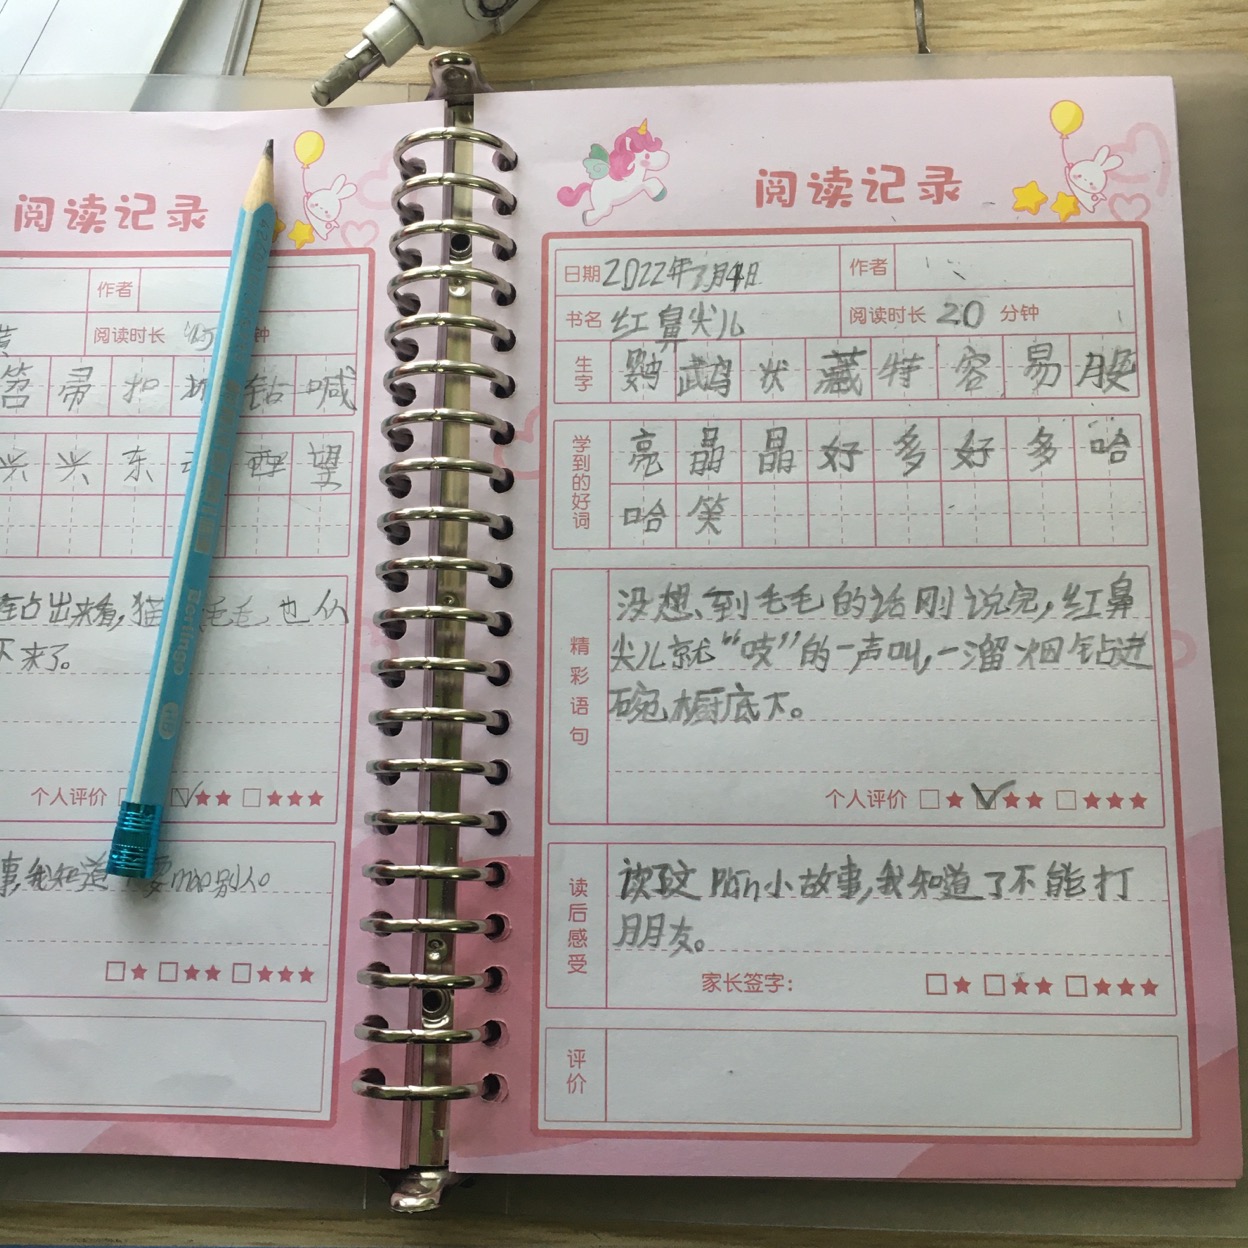 阅读记录
作者
阅读时长 分钟
笤 帚 扣 钻 喊
兴 兴 东 西 望
出来看,猫 毛毛也从
不来了。
个人评价 □★ ☑★★ □★★★
事,我知道 要 别人。
□★ □★★ □★★★
评价
阅读记录
日期 2022年7月4日 作者
书名 红鼻尖儿 阅读时长 20 分钟
生字 鹦 鹉 状 藏 特 容 易 服
学到的好词 亮 晶 晶 好 多 好 多 哈
哈 笑
精彩语句 没想到毛毛的话刚说完,红鼻
尖儿就“吱”的一声叫,一溜烟钻进
碗橱底下。
个人评价 □★ ☑★★ □★★★
读后感受 读了这 小故事,我知道了不能打
朋友。
家长签字: □★ □★★ □★★★
评价